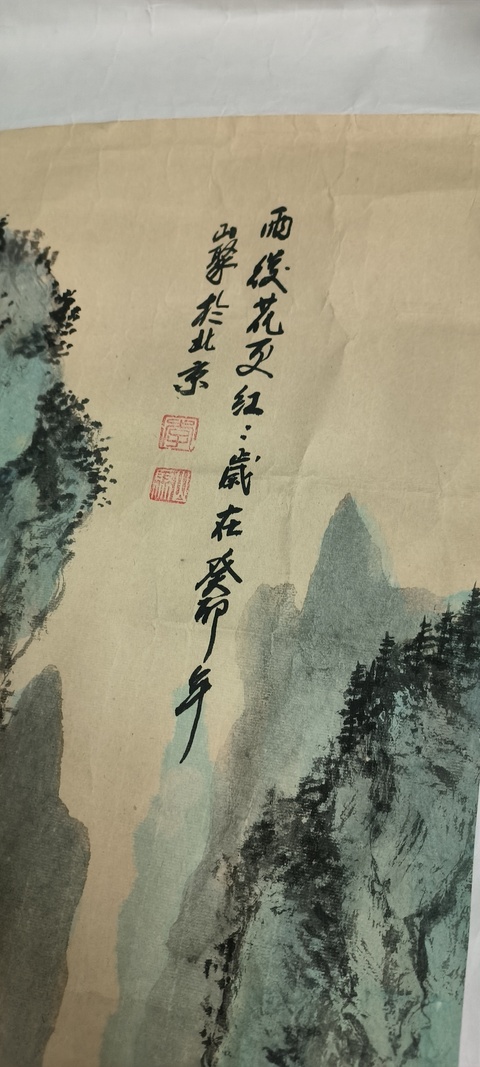 雨後花更紅：歲在癸卯年
山聚於北京